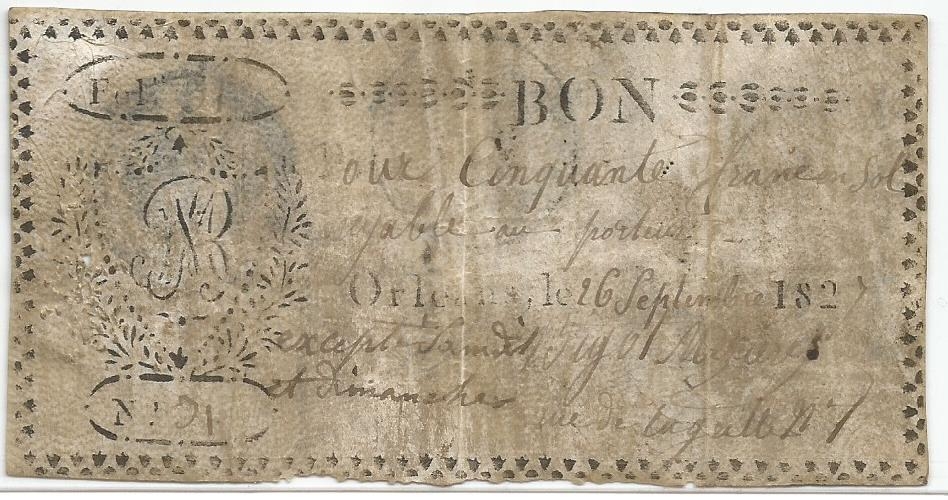 Fol.
BON
Pour Cinquante francs en Sol
payable au porteur
Orléans, le 26 Septembre 1827
excepté Samedi
et dimanche
rue de N° 7
N° 31